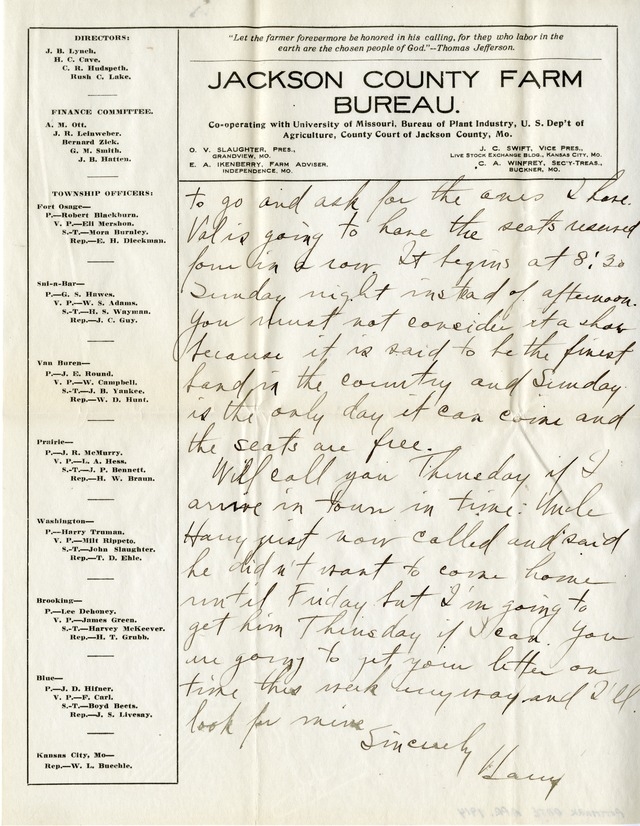 DIRECTORS:
J. B. Lynch,
H. C. Cave,
C. R. Hudspeth,
Rush C. Lake.
FINANCE COMMITTEE.
A. M. Ott,
J. R. Leinweber,
Bernard Zick,
G. M. Smith,
J. B. Hatten.
TOWNSHIP OFFICERS:
Fort Osage—
P.—Robert Blackburn.
V. P.—Ell Mershon.
S.-T.—Mora Burnley.
Rep.—E. H. Dieckman.
Sni-a-Bar—
P.—G. S. Hawes.
V. P.—W. S. Adams.
S.-T.—H. S. Wayman.
Rep.—J. C. Guy.
Van Buren—
P.—J. E. Round.
V. P.—W. Campbell.
S.-T.—J. B. Yankee.
Rep.—W. D. Hunt.
Prairie—
P.—J. R. McMurry.
V. P.—L. A. Hess.
S.-T.—J. P. Bennett.
Rep.—H. W. Braun.
Washington—
P.—Harry Truman.
V. P.—Milt Rippeto.
S.-T.—John Slaughter.
Rep.—T. D. Ehle.
Brooking—
P.—Lee Dehoney.
V. P.—James Green.
S.-T.—Harvey McKeever.
Rep.—H. T. Grubb.
Blue—
P.—J. D. Hifner.
V. P.—F. Carl.
S.-T.—Boyd Beets.
Rep.—J. S. Livesay.
Kansas City, Mo—
Rep.—W. L. Buechle.
"Let the farmer forevermore be honored in his calling, for they who labor in the
earth are the chosen people of God."--Thomas Jefferson.
JACKSON COUNTY FARM
BUREAU.
Co-operating with University of Missouri, Bureau of Plant Industry, U. S. Dep't of
Agriculture, County Court of Jackson County, Mo.
O. V. SLAUGHTER, PRES.,
GRANDVIEW, MO.
E. A. IKENBERRY, FARM ADVISER,
INDEPENDENCE, MO.
J. C. SWIFT, VICE PRES.,
LIVE STOCK EXCHANGE BLDG., KANSAS CITY, MO.
C. A. WINFREY, SEC'Y-TREAS.,
BUCKNER, MO.
to go and ask for the ones I have.
Val is going to have the seats reserved
four in a row. It begins at 8:30
Sunday night instead of afternoon.
You must not consider it a show
because it is said to be the finest
band in the country and Sunday
is the only day it can come and
the seats are free.
Will call you Thursday if I
arrive in town in time. Uncle
Harry just now called and said
he didn't want to come home
until Friday but I'm going to
get him Thursday if I can. You
are going to get your letter on
time this week anyway and I'll
look for mine
Sincerely
Harry